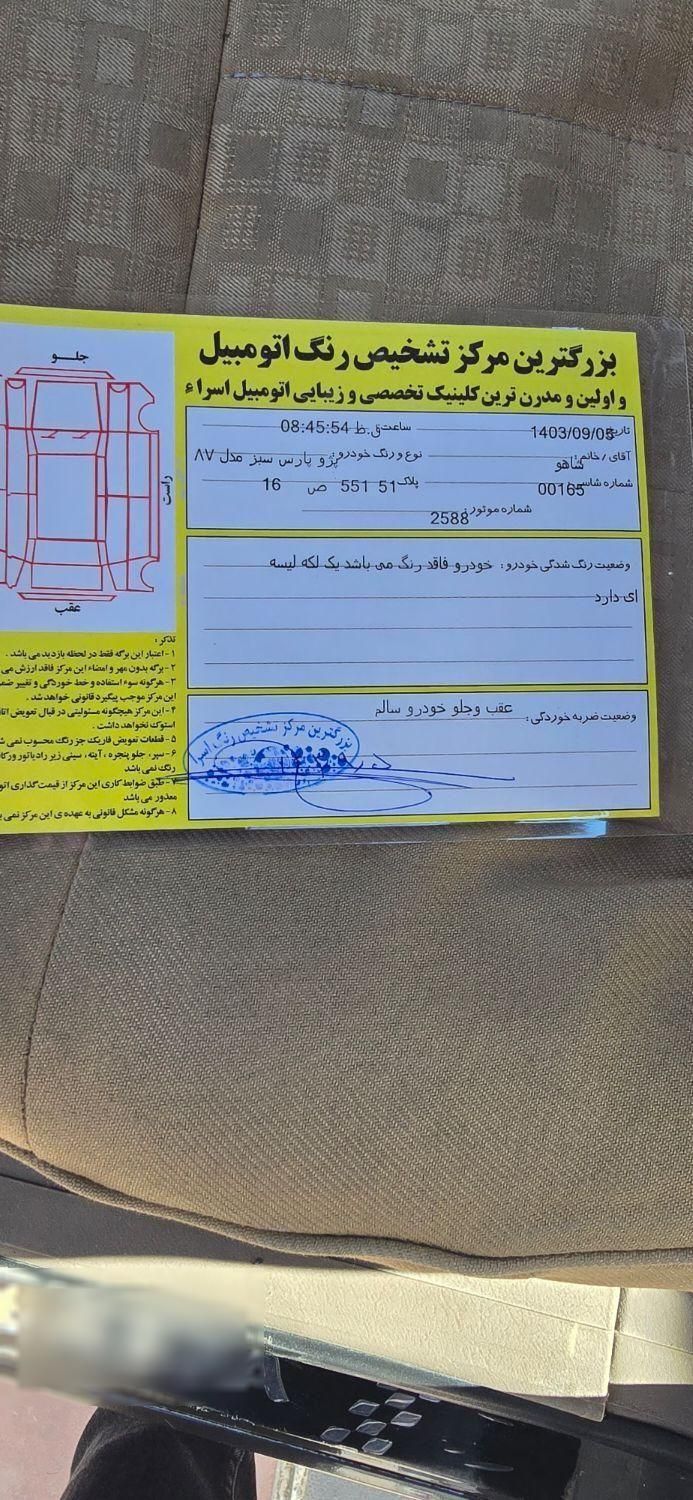 بزرگترین مرکز تشخیص رنگ اتومبیل
و اولین و مدرن ترین کلینیک تخصصی و زیبایی اتومبیل اسراء
تاریخ: 1403/09/05 ساعت: 08:45:54 ق.ظ
آقای / خانم: شاهو نوع و رنگ خودرو: پژو پارس سبز مدل ۸۷
شماره شاسی: 00165 پلاک: 51 551 ص 16
شماره موتور: 2588
وضعیت رنگ شدگی خودرو: خودرو فاقد رنگ می باشد یک لکه لیسه
ای دارد
وضعیت ضربه خوردگی: عقب وجلو خودرو سالم
بزرگترین مرکز تشخیص رنگ اسرا
جلـــو
راست
عقب
تذکر:
۱- اعتبار این برگه فقط در لحظه بازدید می باشد.
۲- برگه بدون مهر و امضاء این مرکز فاقد ارزش می
۳- هرگونه سوء استفاده و خط خوردگی و تغییر ضم
این مرکز موجب پیگیرد قانونی خواهد شد.
۴- این مرکز هیچگونه مسئولیتی در قبال تعویض اتا
استوک نخواهد داشت.
۵- قطعات تعویض فابریک جز رنگ محسوب نمی ش
۶- سپر، جلو پنجره، آینه، سینی زیر رادیاتور ورکا
رنگ نمی باشد
۷- طبق ضوابط کاری این مرکز از قیمت گذاری اتو
معذور می باشد
۸- هرگونه مشکل قانونی به عهده ی این مرکز نمی ب